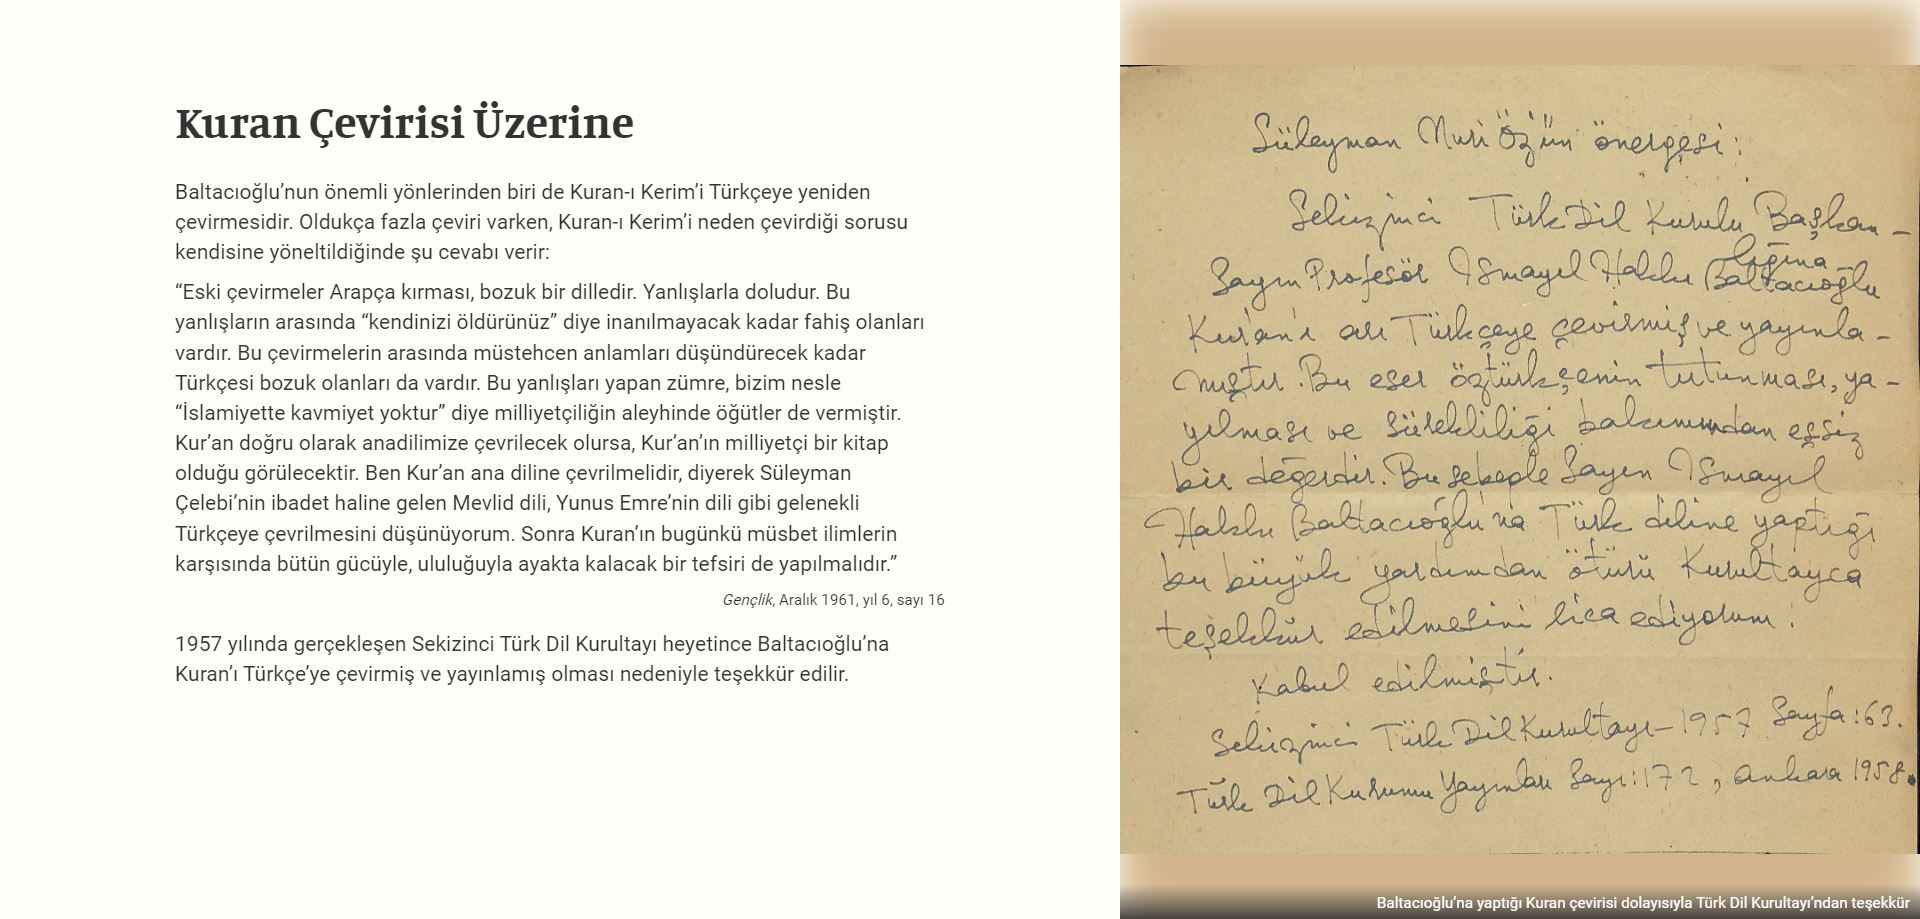 Kuran Çevirisi Üzerine
Baltacıoğlu’nun önemli yönlerinden biri de Kuran-ı Kerim’i Türkçeye yeniden
çevirmesidir. Oldukça fazla çeviri varken, Kuran-ı Kerim’i neden çevirdiği sorusu
kendisine yöneltildiğinde şu cevabı verir:
“Eski çevirmeler Arapça kırması, bozuk bir dilledir. Yanlışlarla doludur. Bu
yanlışların arasında “kendinizi öldürünüz” diye inanılmayacak kadar fahiş olanları
vardır. Bu çevirmelerin arasında müstehcen anlamları düşündürecek kadar
Türkçesi bozuk olanları da vardır. Bu yanlışları yapan zümre, bizim nesle
“İslamiyette kavmiyet yoktur” diye milliyetçiliğin aleyhinde öğütler de vermiştir.
Kur’an doğru olarak anadilimize çevrilecek olursa, Kur’an’ın milliyetçi bir kitap
olduğu görülecektir. Ben Kur’an ana diline çevrilmelidir, diyerek Süleyman
Çelebi’nin ibadet haline gelen Mevlid dili, Yunus Emre’nin dili gibi gelenekli
Türkçeye çevrilmesini düşünüyorum. Sonra Kuran’ın bugünkü müsbet ilimlerin
karşısında bütün gücüyle, ululuğuyla ayakta kalacak bir tefsiri de yapılmalıdır.”
Gençlik, Aralık 1961, yıl 6, sayı 16
1957 yılında gerçekleşen Sekizinci Türk Dil Kurultayı heyetince Baltacıoğlu’na
Kuran’ı Türkçe’ye çevirmiş ve yayınlamış olması nedeniyle teşekkür edilir.
Süleyman Nuri Öz'ün önergesi:
Sekizinci Türk Dil Kurulu Başkan-
lığına
Sayın Profesör Ismayıl Hakkı Baltacıoğlu
Kur'an'ı arı Türkçeye çevirmiş ve yayınla-
mıştır. Bu eser öztürkçenin tutunması, ya-
yılması ve sürekliliği bakımından eşsiz
bir değerdir. Bu sebeple Sayın Ismayıl
Hakkı Baltacıoğlu'na Türk diline yaptığı
bu büyük yardımdan ötürü Kurultayca
teşekkür edilmesini rica ediyorum.
Kabul edilmiştir.
Sekizinci Türk Dil Kurultayı-1957 Sayfa:63.
Türk Dil Kurumu Yayınları Sayı:172, Ankara 1958.
Baltacıoğlu’na yaptığı Kuran çevirisi dolayısıyla Türk Dil Kurultayı’ndan teşekkür